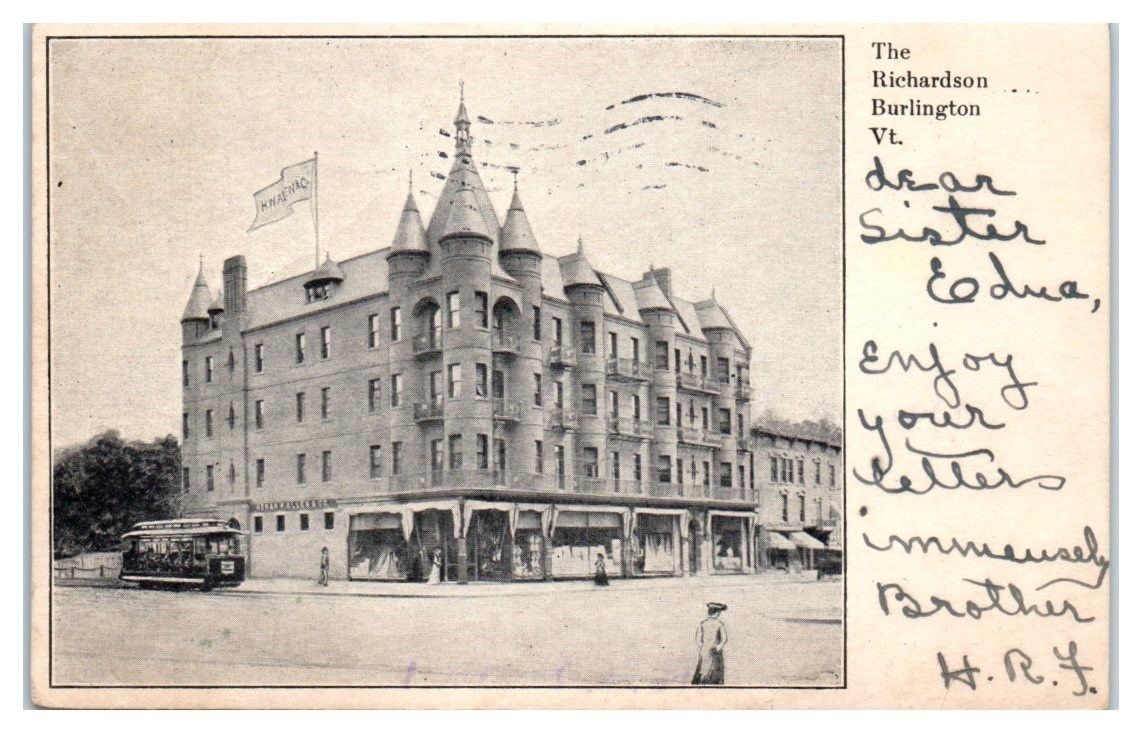 The
Richardson
Burlington
Vt.
dear
Sister
Edna,
Enjoy
your
letters
immensely
Brother
H. R. F.
H.W.ALLEN&CO.